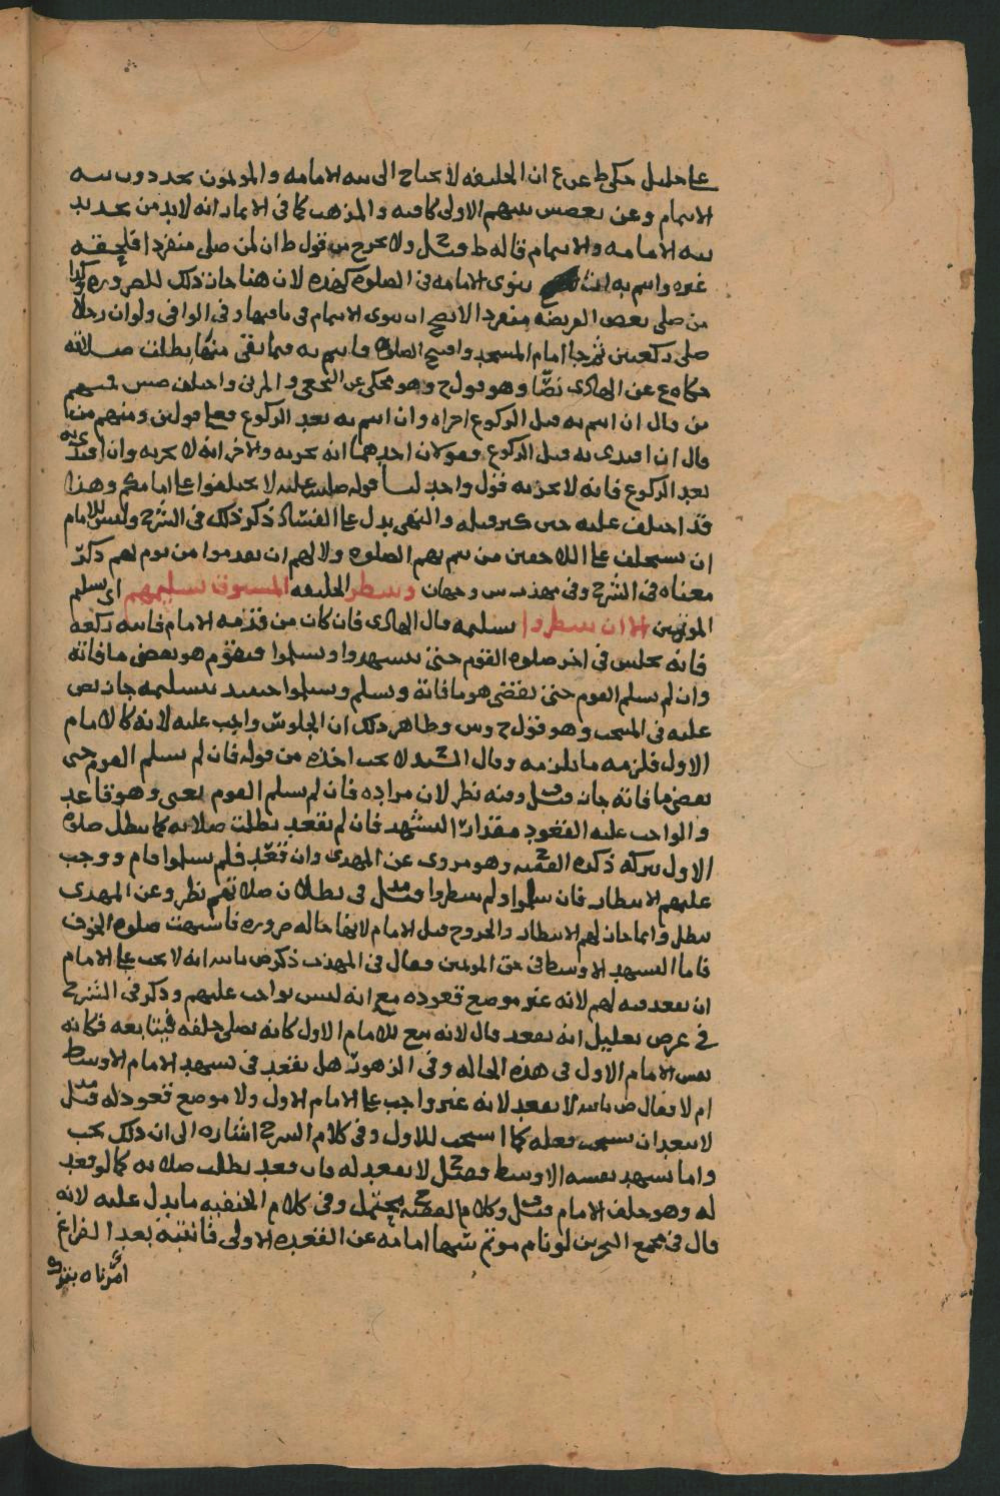 علي خليل حكي ط عن ع ان الخليفه لا يحتاج الى نيه الامامه والمؤتمون يجددون نيه
الايتمام وعن بعض نيتهم الاولى كافيه والمذهب كما في الابتدا انه لابد من تجديد
نيه الامامه والايتمام قاله ط وقيل ولا يخرج من قول ط ان لمن صلى منفردا فلحقه
غيره وايتم به ان ينوى الامامه في الصلوه كهذه لان هنا جاز ذلك للضروره وكذا
من صلى بعض الفريضه منفردا لا يصح ان ينوى الايتمام في باقيها وفي الوافي ولو ان رجلا
صلى ركعتين ثم جا امام المسجد وافتتح الصلوه فايتم به فيما بقي منها بطلت صلاته
حكاه ع عن الهادي نصا وهو قول ح وهو محكي عن النخعي والمزني واختلف صش فمنهم
من قال ان ايتم به قبل الركوع اجزاه وان ايتم به بعد الركوع فعلى قولين ومنهم من
قال ان اقتدى به قبل الركوع فقولان احدهما انه يجزيه والاخر انه لا يجزيه وان اقتدى به
بعد الركوع فانه لا يجزيه قول واحد لنا قوله صلى عليه لا تختلفوا على امامكم وهذا
قد اختلف عليه حين كبر قبله والنهي يدل على الفساد ذكر ذلك في الشرح وليس للامام
ان يستخلف على اللاحقين من يتم بهم الصلوه ولا لهم ان يقدموا من يوم لهم ذكر
معناه في الشرح وفي مهذب ش وجهان وينتظر الخليفه المسبوق تسليمهم اي تسليم
المؤتمين الا ان ينتظروا تسليمه قال الهادي فان كان من قدمه الامام فاتته ركعه
فانه يجلس في اخر صلوه القوم حتى يتشهدوا ويسلموا فيقوم هو يقضي ما فاته
وان لم يسلم القوم حتى يقضي هو ما فاته ويسلم ويسلموا حينئذ بتسليمه جاز نص
عليه في المنتخب وهو قول ح وش وظاهر ذلك ان الجلوس واجب عليه لانه كالامام
الاول فلزمه ما يلزمه وقال السيد لا يجب اخذه من قوله فان لم يسلم القوم حتى
يقضي ما فاته جاز وقيل وفيه نظر لان مراده فان لم يسلم القوم يعني وهو قاعد
والواجب عليه القعود مقدار التشهد فان لم يقعد بطلت صلاته كما تبطل صلوه
الاول بتركه ذكره الفقيه وهو مروى عن المهدى وان قعد فلم يسلموا قام ووجب
عليهم الانتظار فان سلموا ولم ينتظروا فقيل في بطلان صلاتهم نظر وعن المهدى
تبطل وانما جاز لهم الانتظار والخروج قبل الامام لانها حاله ضروره فاشبهت صلوه الخوف
فاما التشهد الاوسط في حق المؤتمين فقال في المهذب ذكر ض انه لا يجب على الامام
ان يقعد فيه لهم لانه غير موضع قعوده مع انه ليس بواجب عليهم وذكر في الشرح
في عرض تعليل انه يقعد قال لانه تبع للامام الاول كانه يصلي خلفه فيتابعه فكانه
نفس الامام الاول في هذه الحاله وفي الزهور هل يقعد في تشهد الامام الاوسط
ام لا فقال ض لا يقعد لانه غير واجب على الامام الاول ولا موضع قعود له قيل
لا يبعد ان يستحب فعله كما استحب للاول وفي كلام الشرح اشاره الى ان ذلك يجب
واما تشهد نفسه الاوسط فقيل لا يقعد له فان قعد بطلت صلاته كما لو قعد
له وهو خلف الامام وقيل وكلام الفقيه يحتمل وفي كلام الحنفيه ما يدل عليه لانه
قال في مجمع البحرين لو نام موتم شها امامه عن القعده الاولى فانتبه بعد الفراغ
امرناه بترك